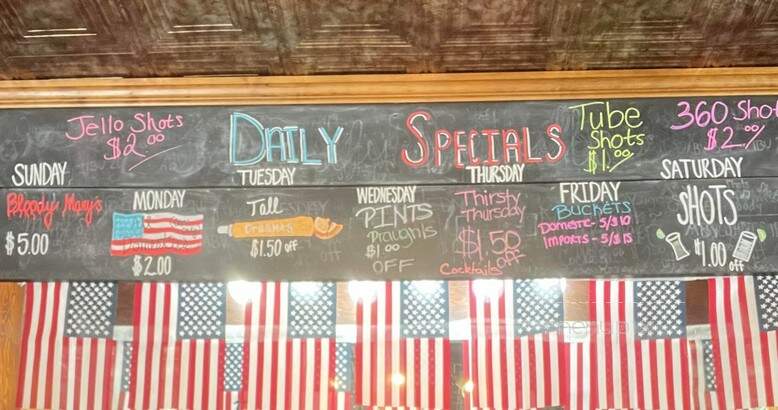 Jello Shots
$2.00
DAILY SPECIALS
Tube
Shots
$1.00
360 Shot
$2.00
SUNDAY
Bloody Mary's
$5.00
MONDAY
$2.00
TUESDAY
Tall
Draughts
$1.50 off
WEDNESDAY
PINTS
Draughts
$1.00
OFF
THURSDAY
Thirsty
Thursday
$1.50
off
Cocktails
FRIDAY
BUCKETS
DOMESTIC - 5/$10
IMPORTS - 5/$15
SATURDAY
SHOTS
$1.00 off